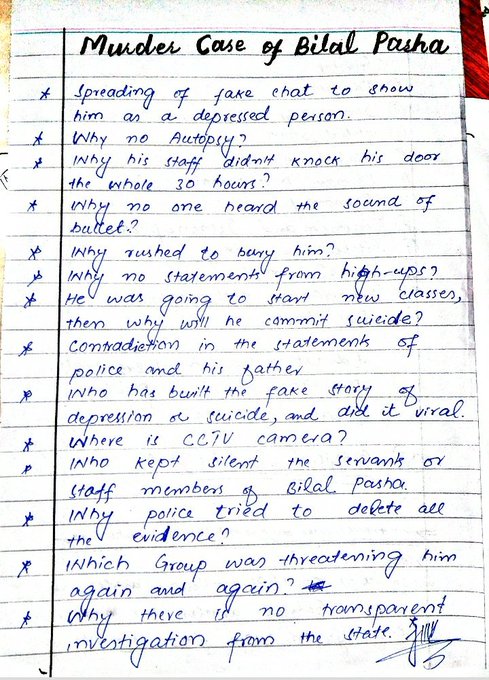 Murder Case of Bilal Pasha
* Spreading of fake chat to show
him as a depressed person.
* Why no Autopsy?
* Why his staff didn't knock his door
the whole 30 hours?
* Why no one heard the sound of
bullet?
* Why rushed to bury him?
* Why no statements from high-ups?
* He was going to start new classes,
then why will he commit suicide?
* Contradiction in the statements of
police and his father
* Who has built the fake story of
depression or suicide, and did it viral.
* Where is CCTV camera?
* Who kept silent the servants or
staff members of Bilal Pasha.
* Why police tried to delete all
the evidence?
* Which Group was threatening him
again and again?
* Why there is no transparent
investigation from the state.